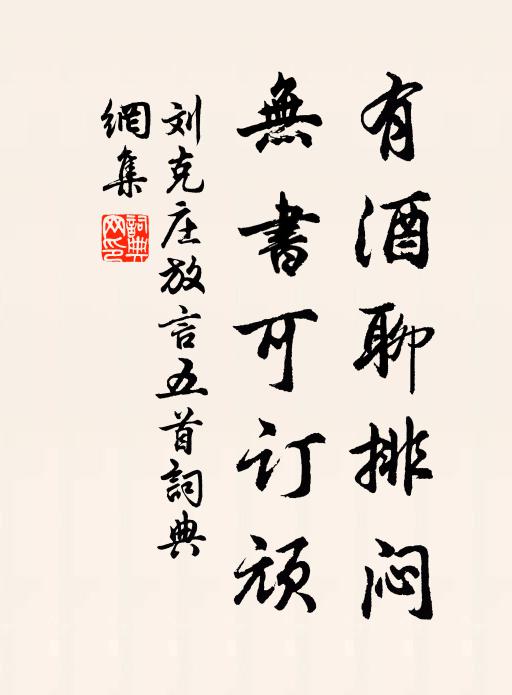 有酒聊排闷
無書可订顽
刘克庄放言五首詞典
網集
詞典網印